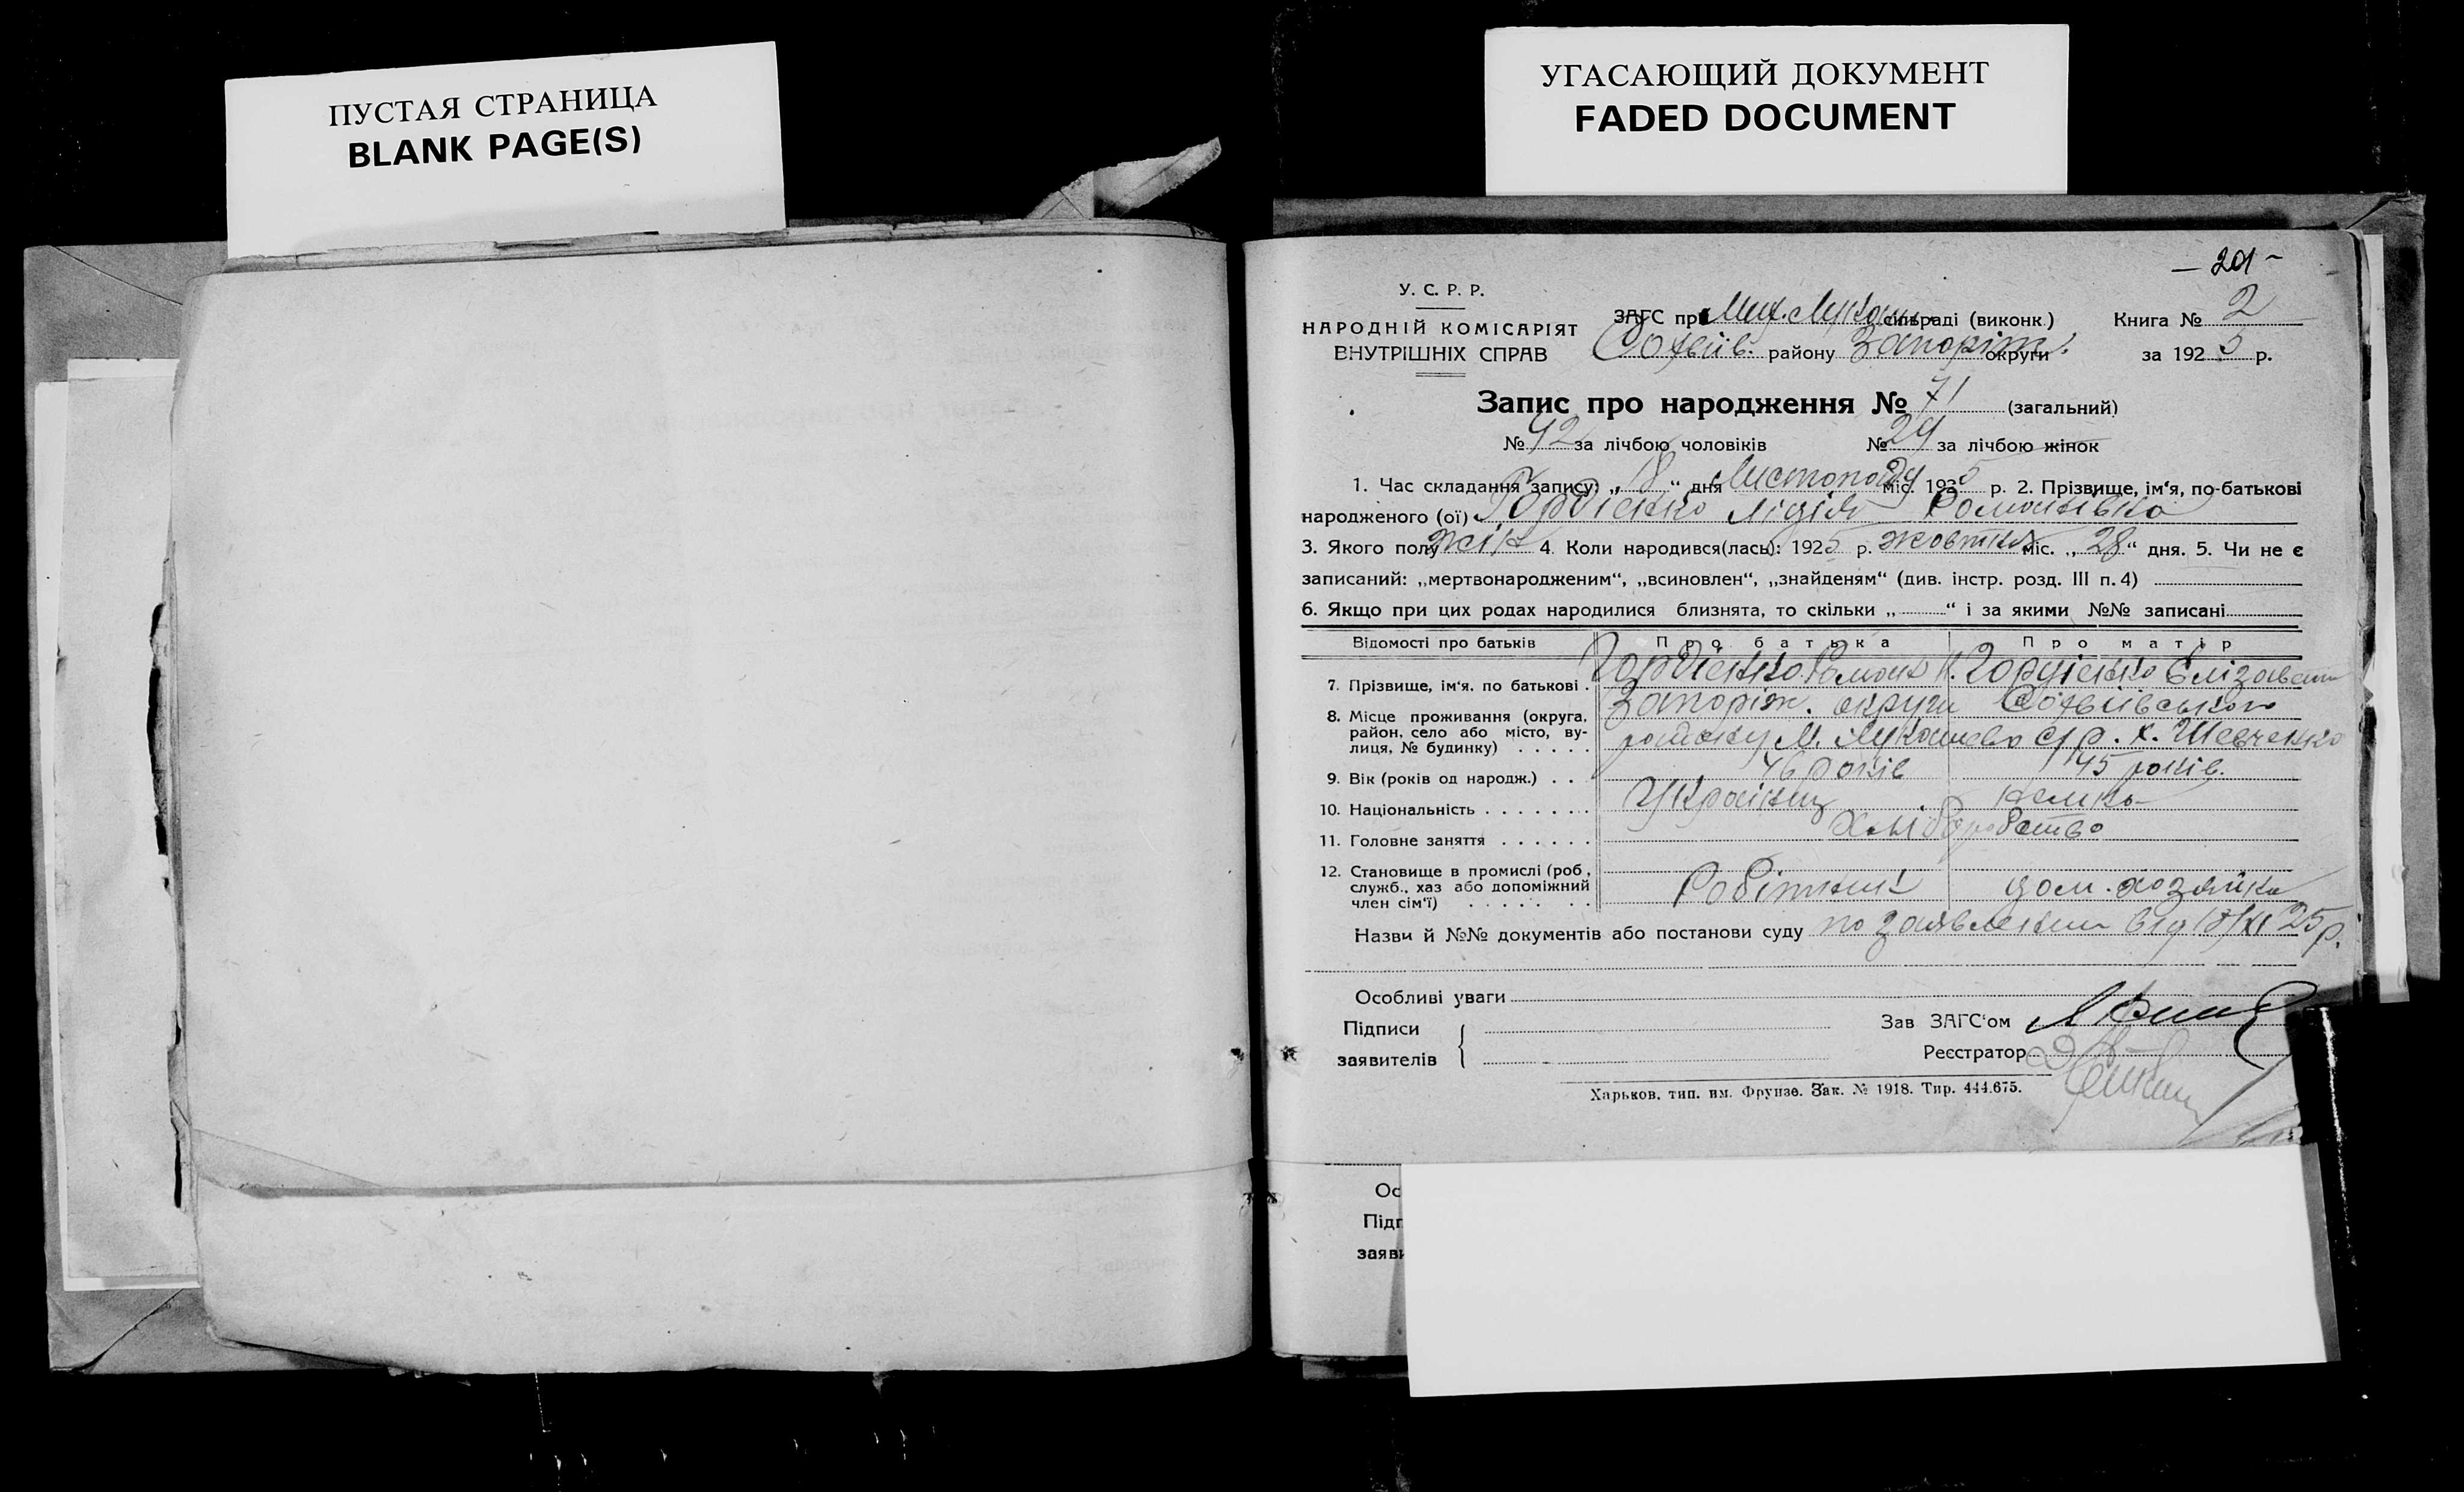 ПУСТАЯ СТРАНИЦА
BLANK PAGE(S)
УГАСАЮЩИЙ ДОКУМЕНТ
FADED DOCUMENT
У. С. Р. Р.
НАРОДНІЙ КОМІСАРІЯТ
ВНУТРІШНІХ СПРАВ
ЗАГС при Мих. Лукаш. сільраді (виконк.)
Софіїв. району Запоріж. округи
Книга № 2
за 1925 р.
Запис про народження № 71 (загальний)
№ 42 за лічбою чоловіків № 29 за лічбою жінок
1. Час складання запису: „18“ дня Листопаду міс. 1925 р. 2. Прізвище, ім‘я, по-батькові
народженого (ої) Гордієнко Лідія Романівна
3. Якого полу жін 4. Коли народився(лась): 1925 р. жовтня міс. „28“ дня. 5. Чи не є
записаний: „мертвонародженим“, „всиновлен“, „знайденям“ (див. інстр. розд. III п. 4)
6. Якщо при цих родах народилися близнята, то скільки „ “ і за якими №№ записані
Відомості про батьків Про батька Про матір
7. Прізвище, ім‘я, по батькові Гордієнко Роман К. Гордієнко Єлізавета
8. Місце проживання (округа, район, село або місто, вулиця, № будинку) Запоріж. округи Софіївського
району М. Лукашево с/р. х. Шевченко
9. Вік (років од народж.) 46 років 45 років.
10. Національність Українец немка
11. Головне заняття Хліборобство
12. Становище в промислі (роб, служб., хаз або допоміжний член сім‘ї) Робітник дом. хозяйка
Назви й №№ документів або постанови суду по заявлению від 18/XI 25 р.
Особливі уваги
Підписи
заявителів
Зав ЗАГС‘ом
Реєстратор
Харьков, тип. им. Фрунзе. Зак. № 1918. Тир. 444.675.
Ос
Підп
заяви